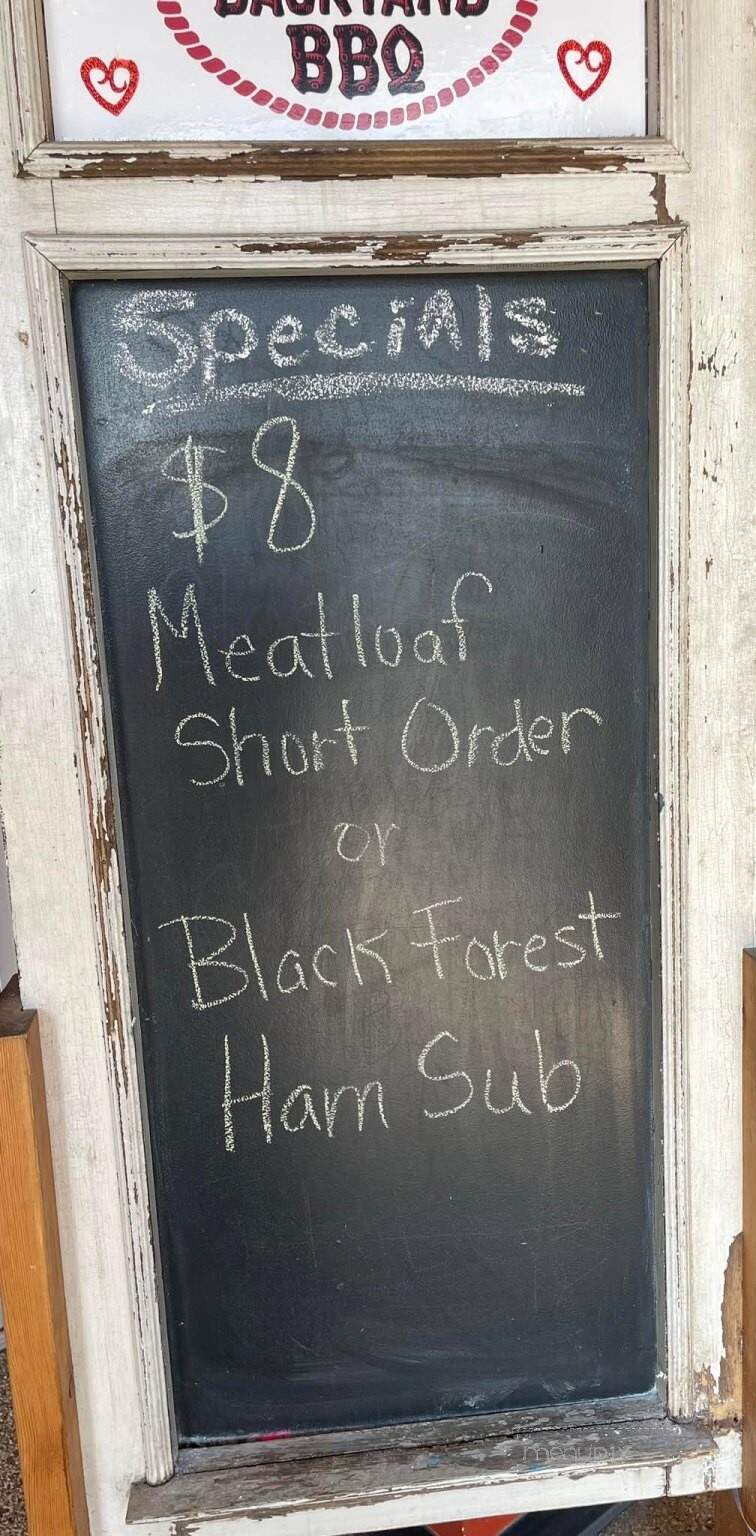 BACKYARD
BBQ
Specials
$8
Meatloaf
Short Order
or
Black Forest
Ham Sub
menupix